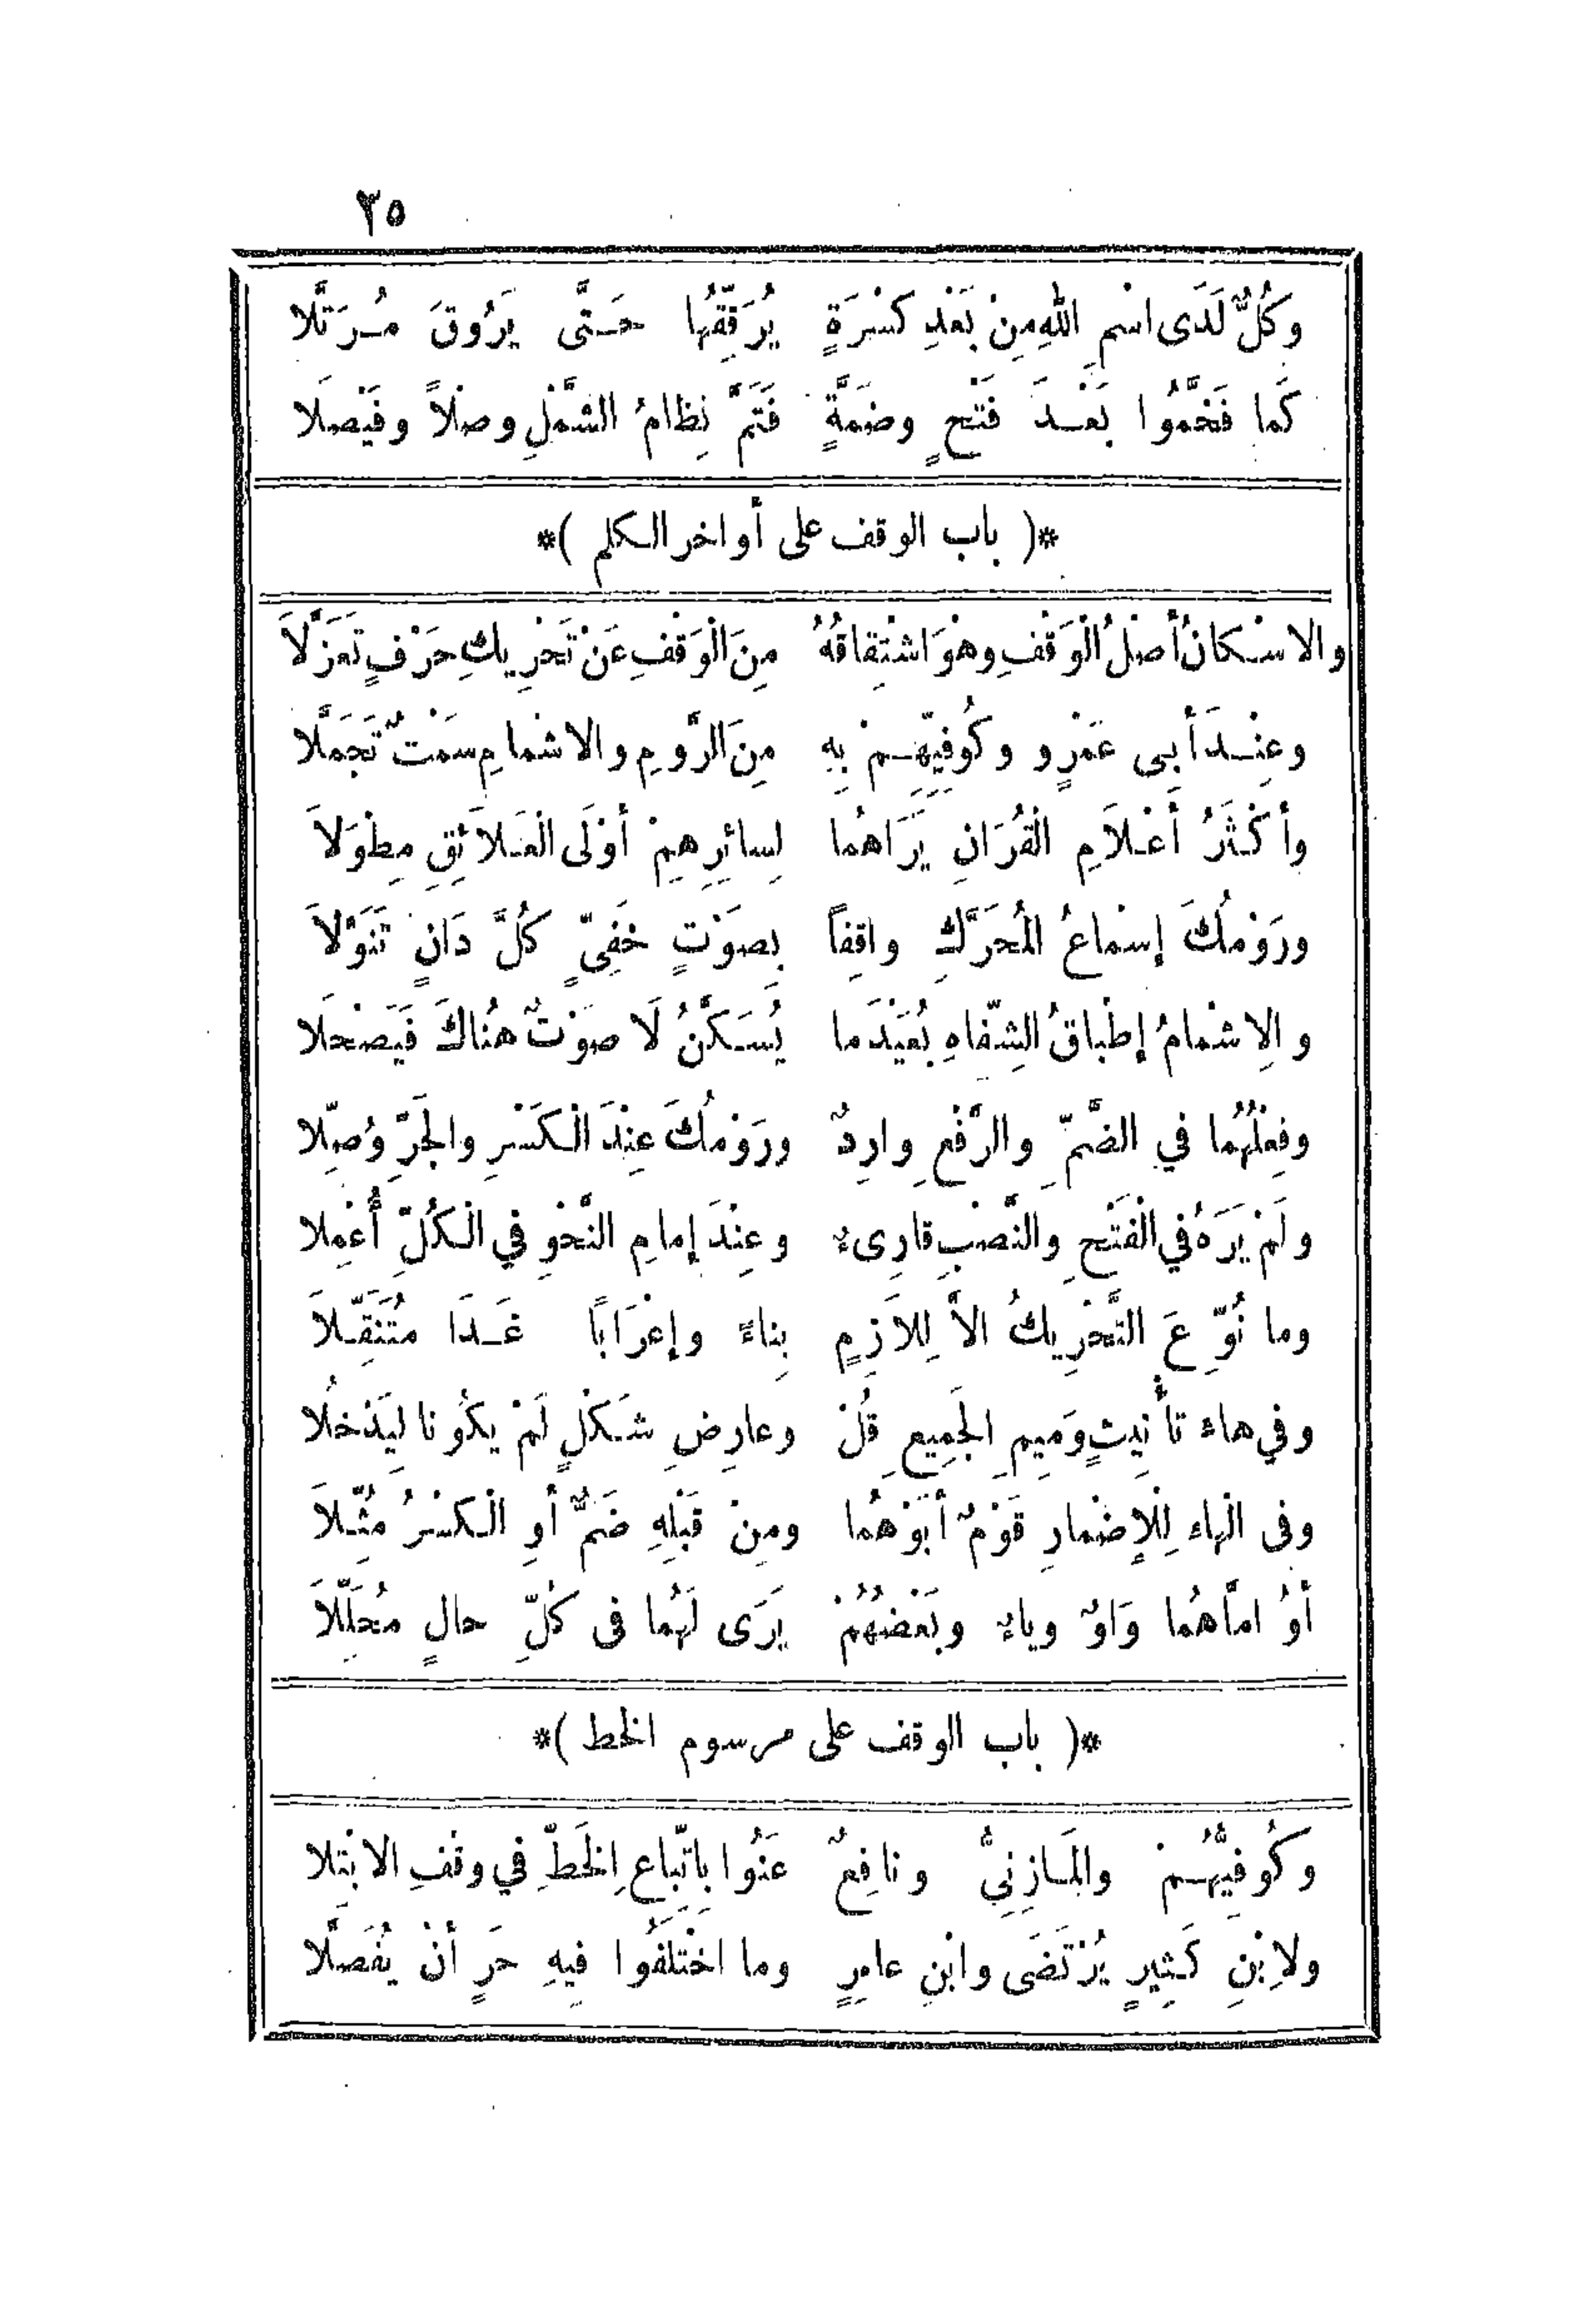 ٣٥
وكُلٌّ لَدَى اسْمِ اللهِ مِنْ بَعْدِ كَسْرَةٍ يُرَقِّقُها حَتَّى يَرُوقَ مُرَتَّلا
كَما فَخَّمُوا بَعْدَ فَتْحٍ وضَمَّةٍ فَتَمَّ نِظامُ الشَّمْلِ وصْلاً وفَيْصَلا
*( باب الوقف على أواخر الكلم )*
والاسْكانُ أصْلُ الْوَقْفِ وهْوَ اشْتِقاقُهُ مِنَ الْوَقْفِ عَنْ تَحْرِيكِ حَرْفٍ تَعَزَّلاَ
وعِنْدَ أبى عَمْرٍو وكُوفِيِّهِمْ بِهِ مِنَ الرَّوْمِ والاشْمامِ سَمْتٌ تَجَمَّلا
وأكْثَرُ أعْلاَمِ الْقُرَانِ يَرَاهُما لِسائِرِهِمْ أوْلَى الْعَلاَئِقِ مِطْوَلاَ
ورَوْمُكَ إسْماعُ الْمُحَرَّكِ واقِفاً بِصَوْتٍ خَفِىٍّ كُلَّ دَانٍ تَنَوَّلاَ
والِاشْمامُ إطْباقُ الشِّفاهِ بُعَيْدَما يُسَكَّنُ لَا صَوْتٌ هُناكَ فَيَصْحَلَا
وفِعْلُهُما في الضَّمِّ والرَّفْعِ وارِدٌ ورَوْمُكَ عِنْدَ الْكَسْرِ والْجَرِّ وُصِّلا
ولَمْ يَرَهُ في الْفَتْحِ والنَّصْبِ قارِىءٌ وعِنْدَ إمامِ النَّحْوِ في الْكُلِّ أُعْمِلا
وما نُوِّعَ التَّحْرِيكُ الاَّ لِلاَزِمٍ بِناءً وإعْرَاباً غَدَا مُتَنَقِّلاَ
وفي هاء تأنِيثٍ وَمِيمِ الْجَمِيعِ قُلْ وعارِضِ شَكْلٍ لَمْ يَكُونا لِيَدْخُلا
وفى الْهاء لِلْإضْمارِ قَوْمٌ أبَوْهُما ومِنْ قَبْلِهِ ضَمٌّ أوِ الْكَسْرُ مُثِّلاَ
أوُ امَّاهُما وَاوٌ وياءٌ وبَعْضُهُمْ يَرَى لَهُما فى كُلِّ حالٍ مُحَلِّلاَ
*( باب الوقف على مرسوم الخط )*
وكُوفِيُّهُمْ والْمَازِنِيُّ ونافِعٌ عَنُوا بِاتِّباعِ الْخَطِّ في وقْفِ الابْتِلا
ولاِبْنِ كَثِيرٍ يُرْتَضَى وابْنِ عامِرٍ وما اخْتَلَفُوا فِيهِ حَرٍ أنْ يُفَصَّلا